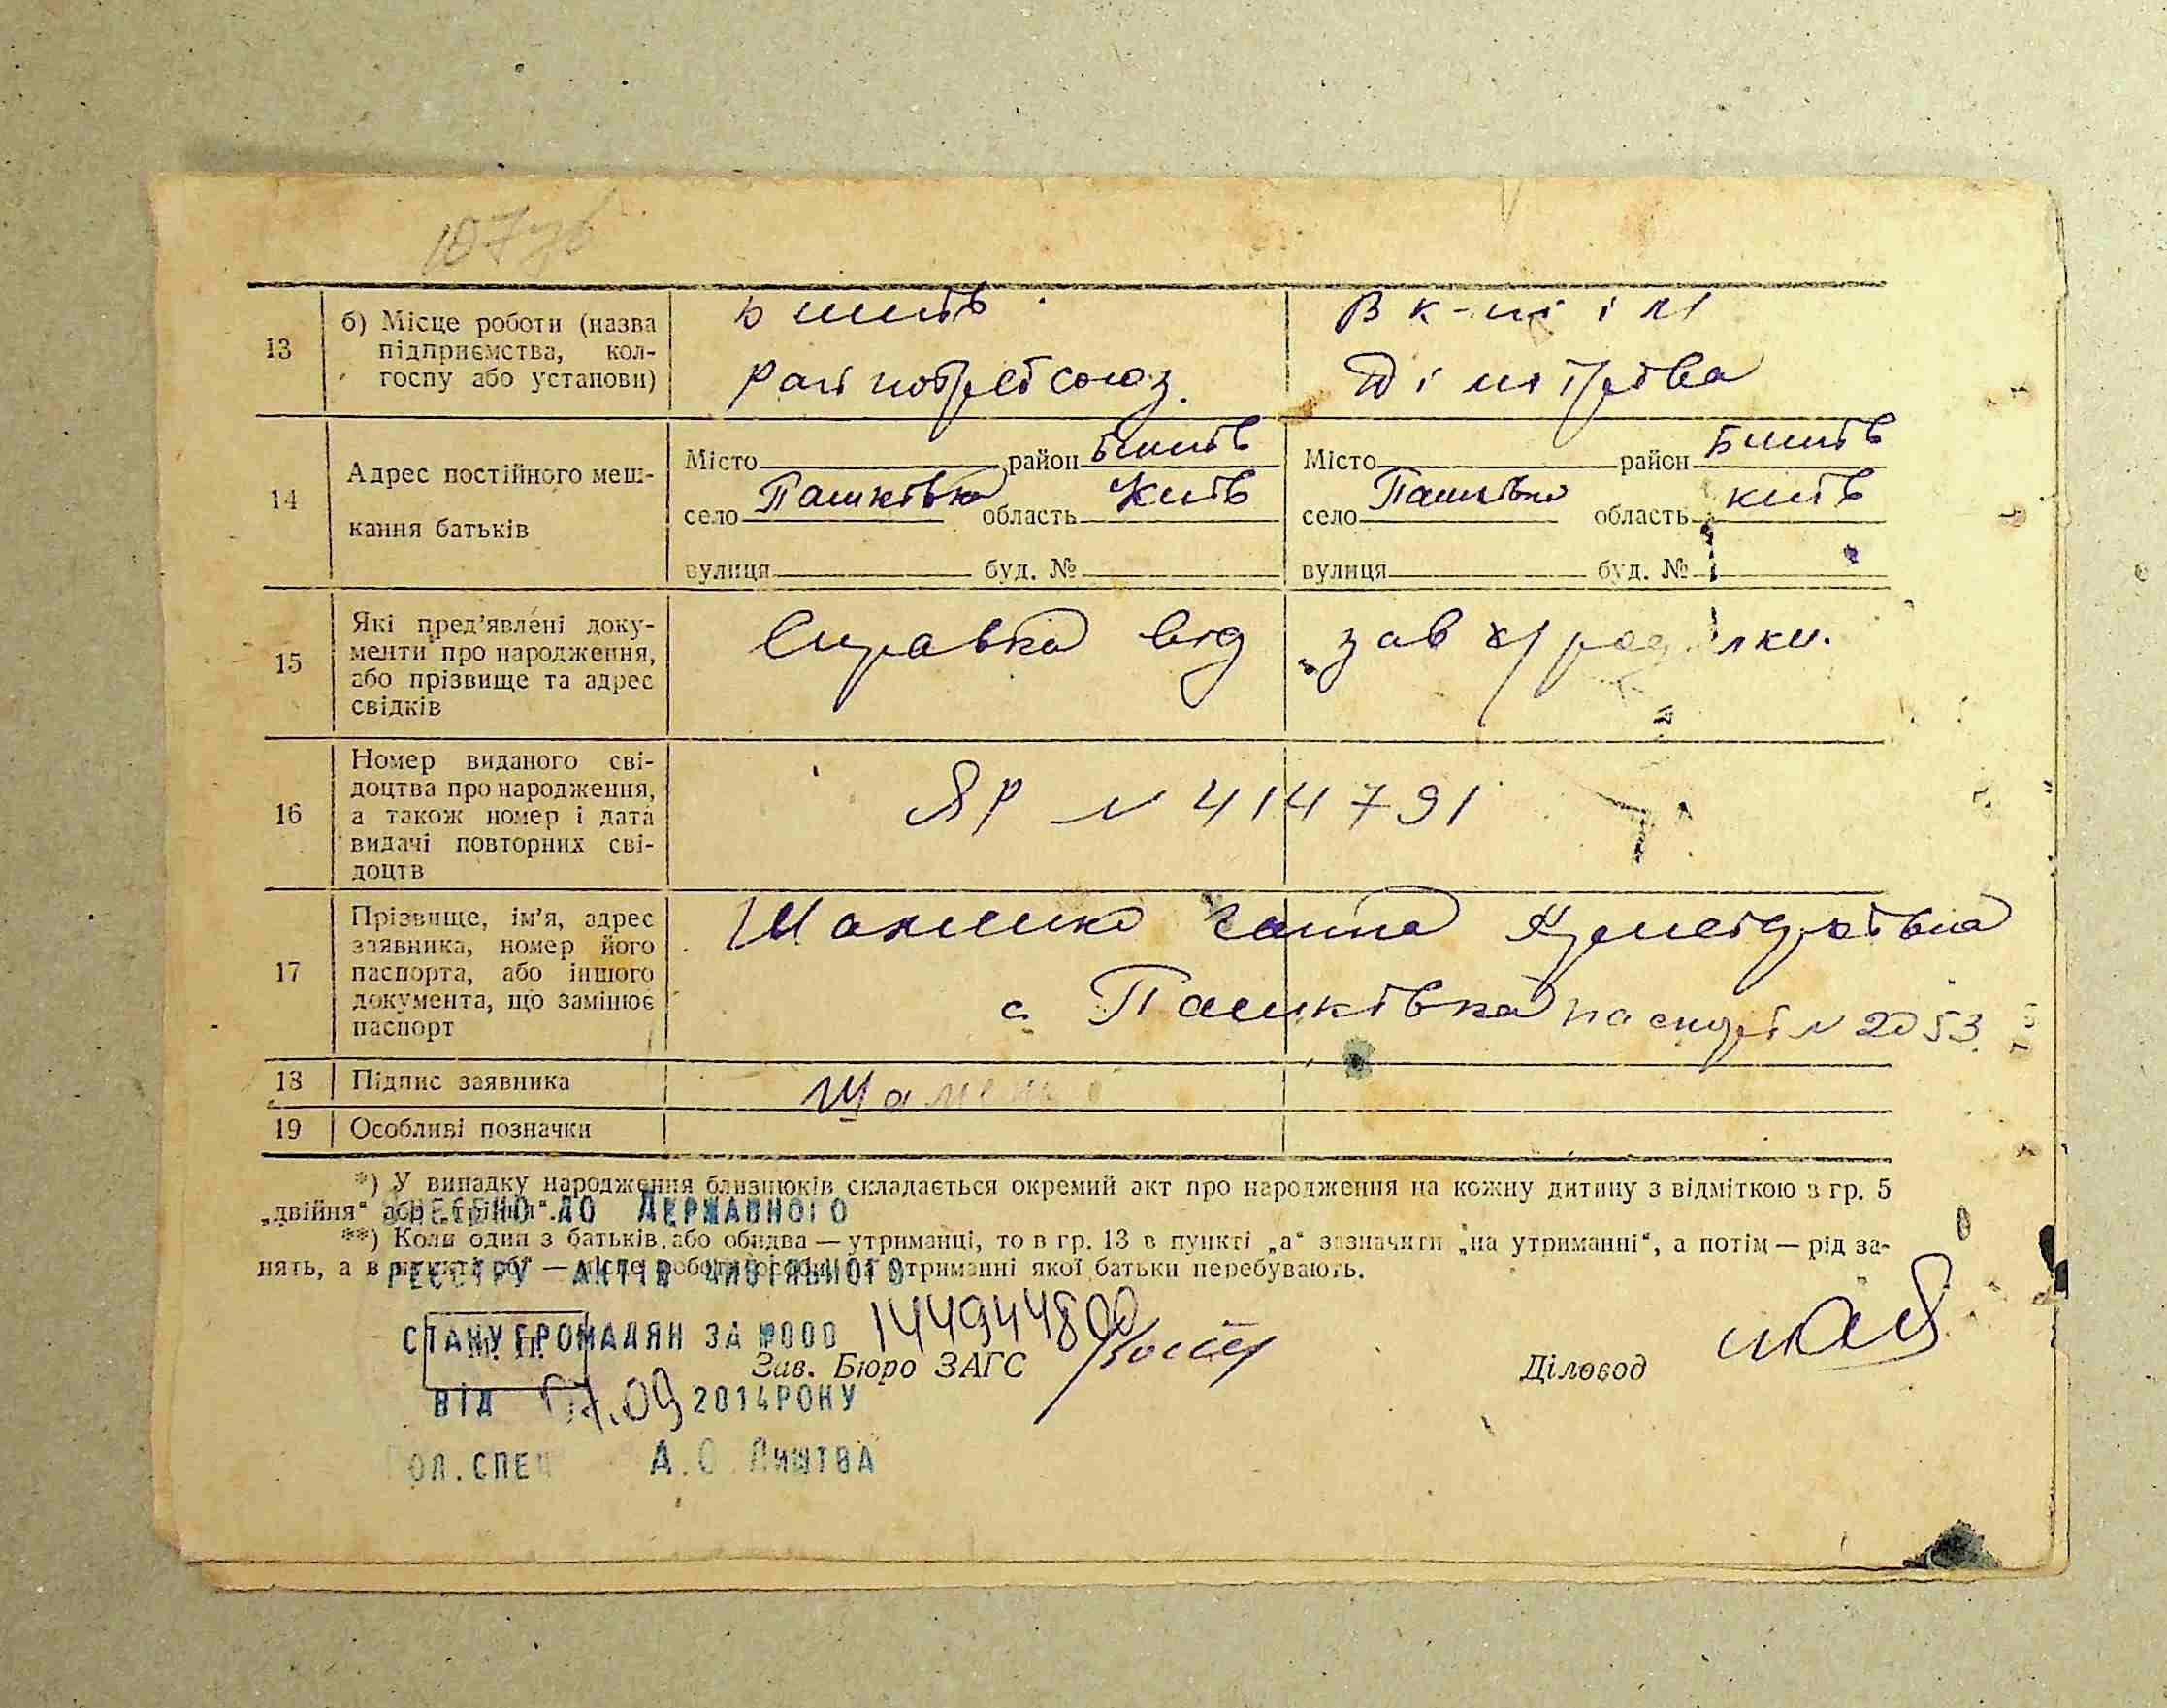 107зв
13
б) Місце роботи (назва
підприємства, кол-
госпу або установи)
Бишів
Райпотребсоюз.
В к-пі ім
Дімітрова
14
Адрес постійного меш-
кання батьків
Місто район Бишів
село Пашківка область Київ
вулиця буд. №
Місто район Бишів
село Пашківка область Київ
вулиця буд. №
15
Які пред'явлені доку-
менти про народження,
або прізвище та адрес
свідків
Справка від зав х/род ілки.
16
Номер виданого сві-
доцтва про народження,
а також номер і дата
видачі повторних сві-
доцтв
ЯР N 414791
17
Прізвище, ім'я, адрес
заявника, номер його
паспорта, або іншого
документа, що замінює
паспорт
Ганна
с. Пашківка паспорт N 2053
18 Підпис заявника
19 Особливі позначки
*) У випадку народження близнюків складається окремий акт про народження на кожну дитину з відміткою в гр. 5
„двійня“ або „трійня“.
ВНЕСЕНО ДО ДЕРЖАВНОГО
**) Коли один з батьків або обидва — утриманці, то в гр. 13 в пункті „а“ зазначити „на утриманні“, а потім — рід за-
нять, а в пункті „б“ — місце роботи особи, на утриманні якої батьки перебувають.
РЕЄСТРУ АКТІВ ЦИВІЛЬНОГО
СТАНУ ГРОМАДЯН ЗА №000 144944800
М. П.
Зав. Бюро ЗАГС
Діловод
ВІД 07.09 2014РОКУ
ГОЛ.СПЕЦ А.О ЛИШТВА